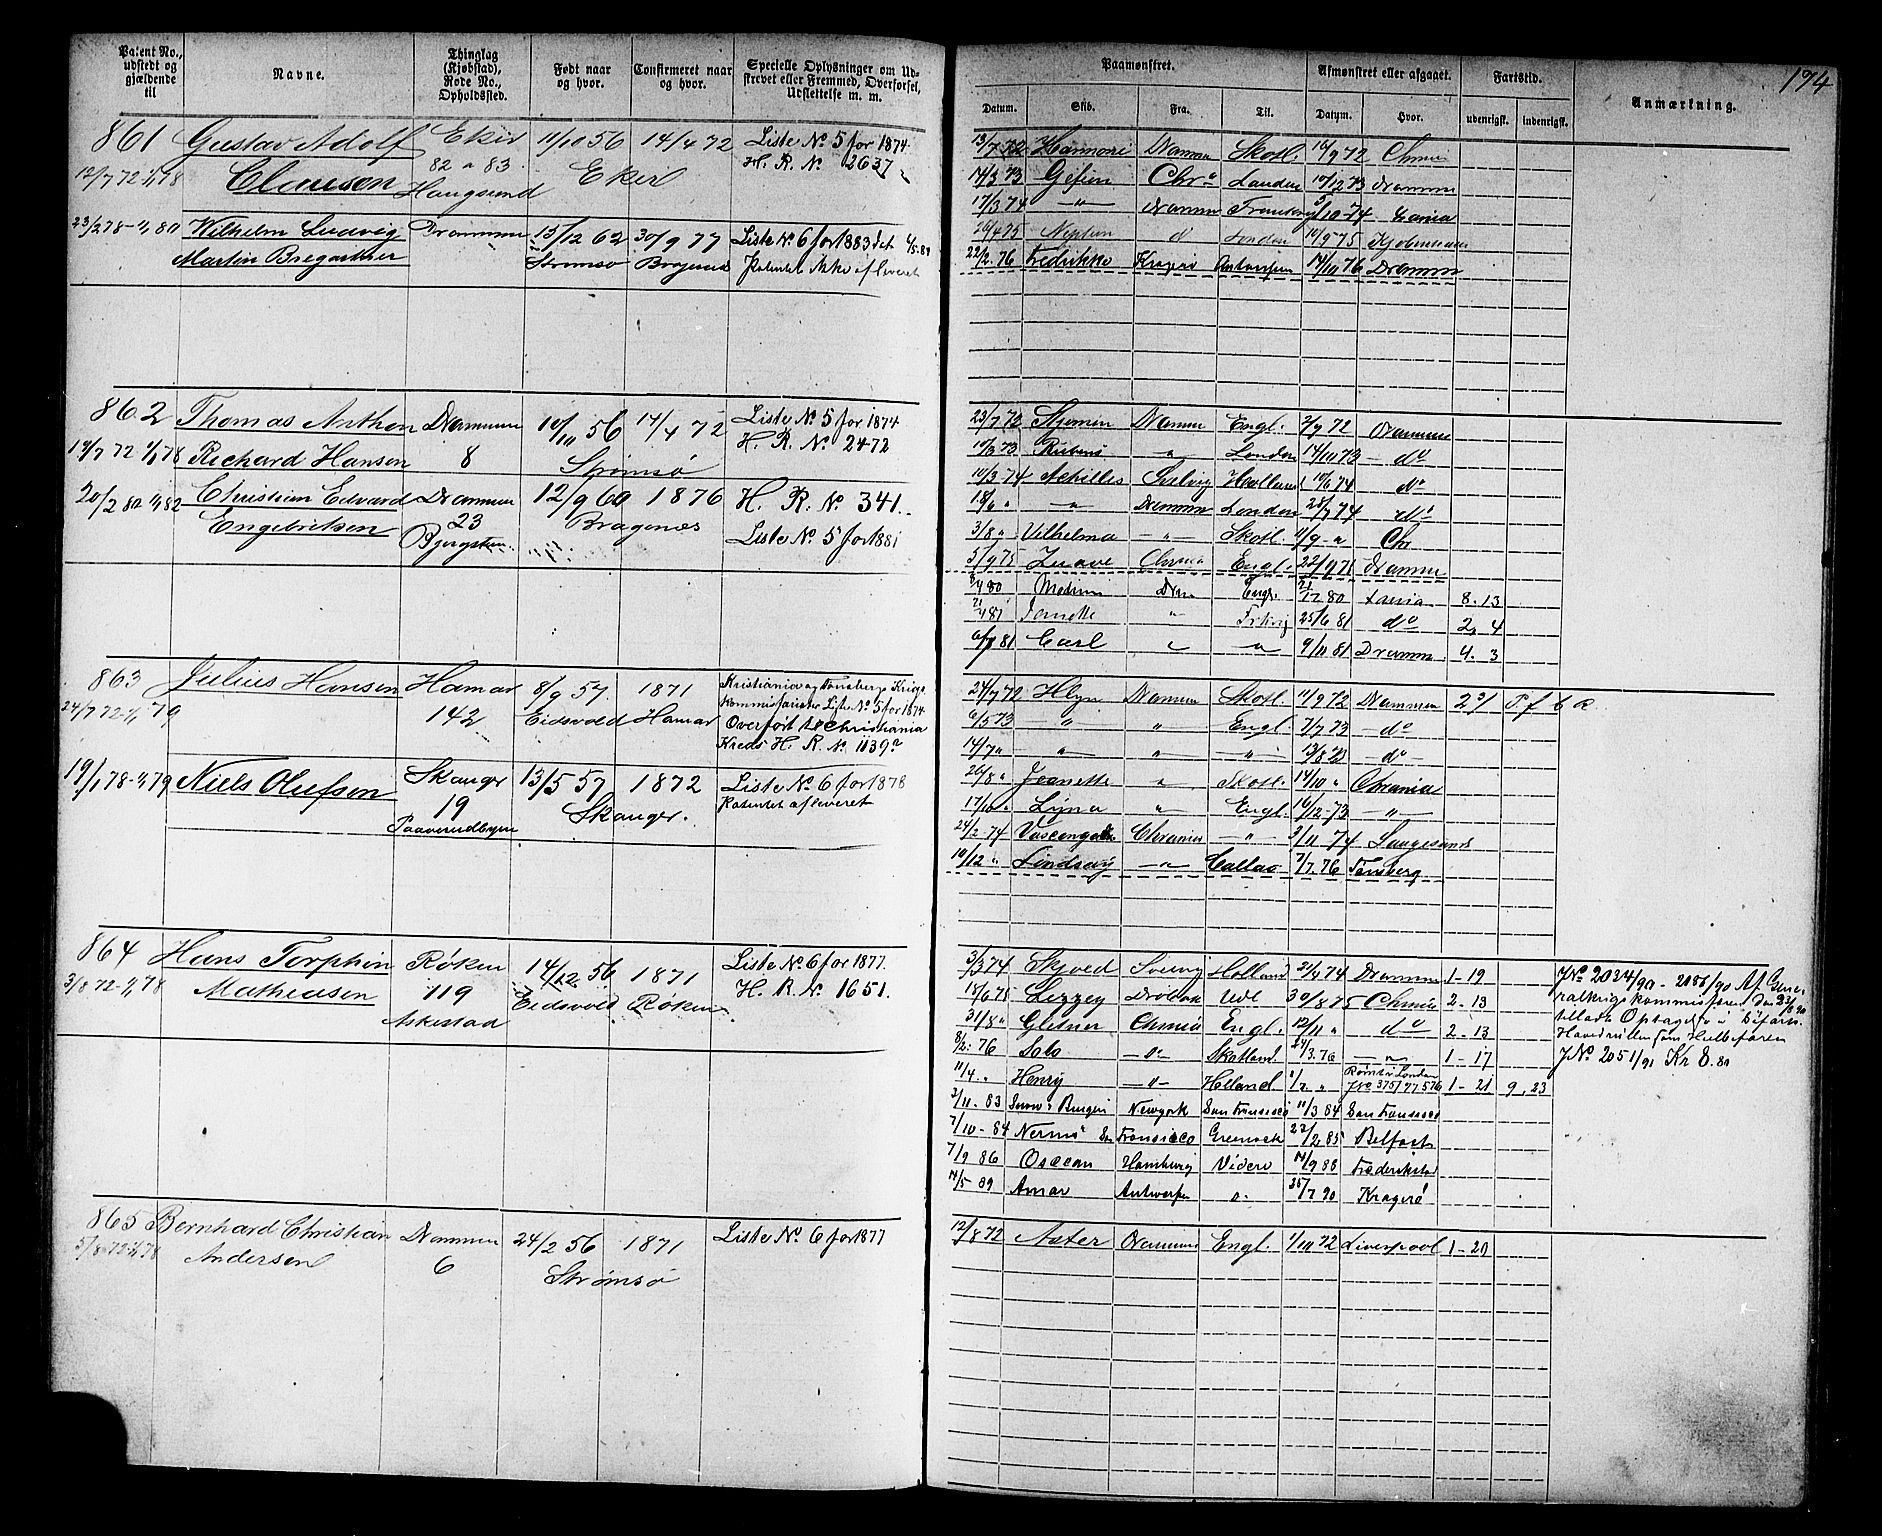 174
Patent No., udstedt og gjældende til
Navne.
Thinglag (Kjøbstad), Rode No., Opholdssted.
Født naar og hvor.
Confirmeret naar og hvor.
Specielle Oplysninger om Udskrevet eller Fremmed, Overførsel, Udslettelse m. m.
Paamønstret.
Afmønstret eller afgaaet.
Fartstid.
Anmærkning.
Datum. Skib. Fra. Til. Datum. Hvor. udenrigsk. indenrigsk.
861 Gustav Adolf Eker 11/10 56 14/4 72 Liste No 5 for 1874
82 a 83 H. R. No 2637
12/7 72 - 1/1 78 Clausen Haugsund Eker
23/2 78 - 1/1 80 Wilhelm Ludvig Drammen 13/12 62 30/9 77 Liste No 6 for 1883
Martin Bregartner Strømsø Bragernes Patentet ikke afleveret
13/7 72 Harmoni Drammen Skotl. 16/9 72
14/3 73 Gefion Chra London 10/12 73 Drammen
17/3 74 " Drammen /10 - 74
26/4 75 Neptun London 10/9 75 Kjøbenhavn
22/2 76 Fredrikke Kragerø Antwerpen 14/10 76 Drammen
862 Thomas Anthon Drammen 10/10 56 14/4 72 Liste No 5 for 1874
H. R. No 2472
19/7 72 1/1 78 Richard Hansen 8 Strømsø
20/2 80 1/1 82 Christian Edvard Drammen 12/9 60 1876 H. R. No 341.
Engebretsen 23 Bragenæs
Liste No 5 for 1881
23/7 72 Drammen Engl. 2/9 72 Drammen
10/3 73 Rubens " London 14/10 73 do
10/3 74 Achilles Holland 10/6 74 do
18/6 " " Drammen London 28/7 74 do
3/8 " Vilhelma " Skotl. 11/9 " Chr
5/9 75 Zuave Chrania Engl. Drammen
80 Drm Engl. 80 8. 13
81 Janette " 25/6 81 do 2. 4
81 Carl " " 9/11 81 Dramm. 4. 3
863 Julius Hansen Hamar 8/9 57 1871 Kristiania og Tønsbergs Krigs-
24/7 72 - 1/1 79 142 Eidsvold Hamar kommissariater Liste No 5 for 1874
Overført til Christiania
Kreds H. R. No 1139
19/1 78 - 1/1 79 Niels Olufsen Skauger 13/5 57 1872 Liste No 6 for 1878
19 Skauger. Patentet afleveret
Paaverudbyen
24/7 72 Drammen Skotl. 11/9 72 Drammen
6/5 73 " " Engl. 7/7 73 do
14/7 " " " " 13/8 73 do
26/8 " Jeanette " Skotl. 14/10 " Chrania
17/10 " " Engl. 16/12 73 "
24/2 74 Chrania " 3/11 74 Langesund
10/12 " Lindsay " Callao 7/7 76 Tønsberg
864 Hans Torphin Røken 14/12 56 1871 Liste No 6 for 1877.
3/8 72 - 1/1 78 Mathiesen 119 Eidsvold Røken H. R. No 1651.
Askestad
3/3 74 Skjold Holland 74 Drammen 1 - 19
18/6 75 Lizzey Drøbak Udl 30/8 75 Chrnia 2 - 13
31/8 " Glitner Chrnia Engl. 12/11 " do 2 - 13
8/2 76 Solo " Skotland /3 76 " 1 - 17
11/4 " Henry " Holland Rømt i London 1 - 21 9. 23
3/11. 83 Newyork San Fransisco 11/3 84 San Fransisco
7/10 - 84 San Fransisco Greenock 22/2 85 Belfast
7/9 86 Oscean Hamburg Videre 14/9 88 Frederikstad
14/5 - 89 Amar Antwerpen " 90 Kragerø
JNo 2034/90 - 2086/90 Af Gene-
ralkrigskommissæren den 23/8 90
tilladt Optagelse i
Hovedrullen som Helbefaren
JNo 2051/91 Kr 8.80
865 Bernhard Christian Drammen 24/2 56 1871 Liste No 6 for 1877
5/8 72 - 1/1 78 Andersen 6 Strømsø
12/8 72 Aster Drammen Engl. 1/10 72 Liverpool 1 - 20